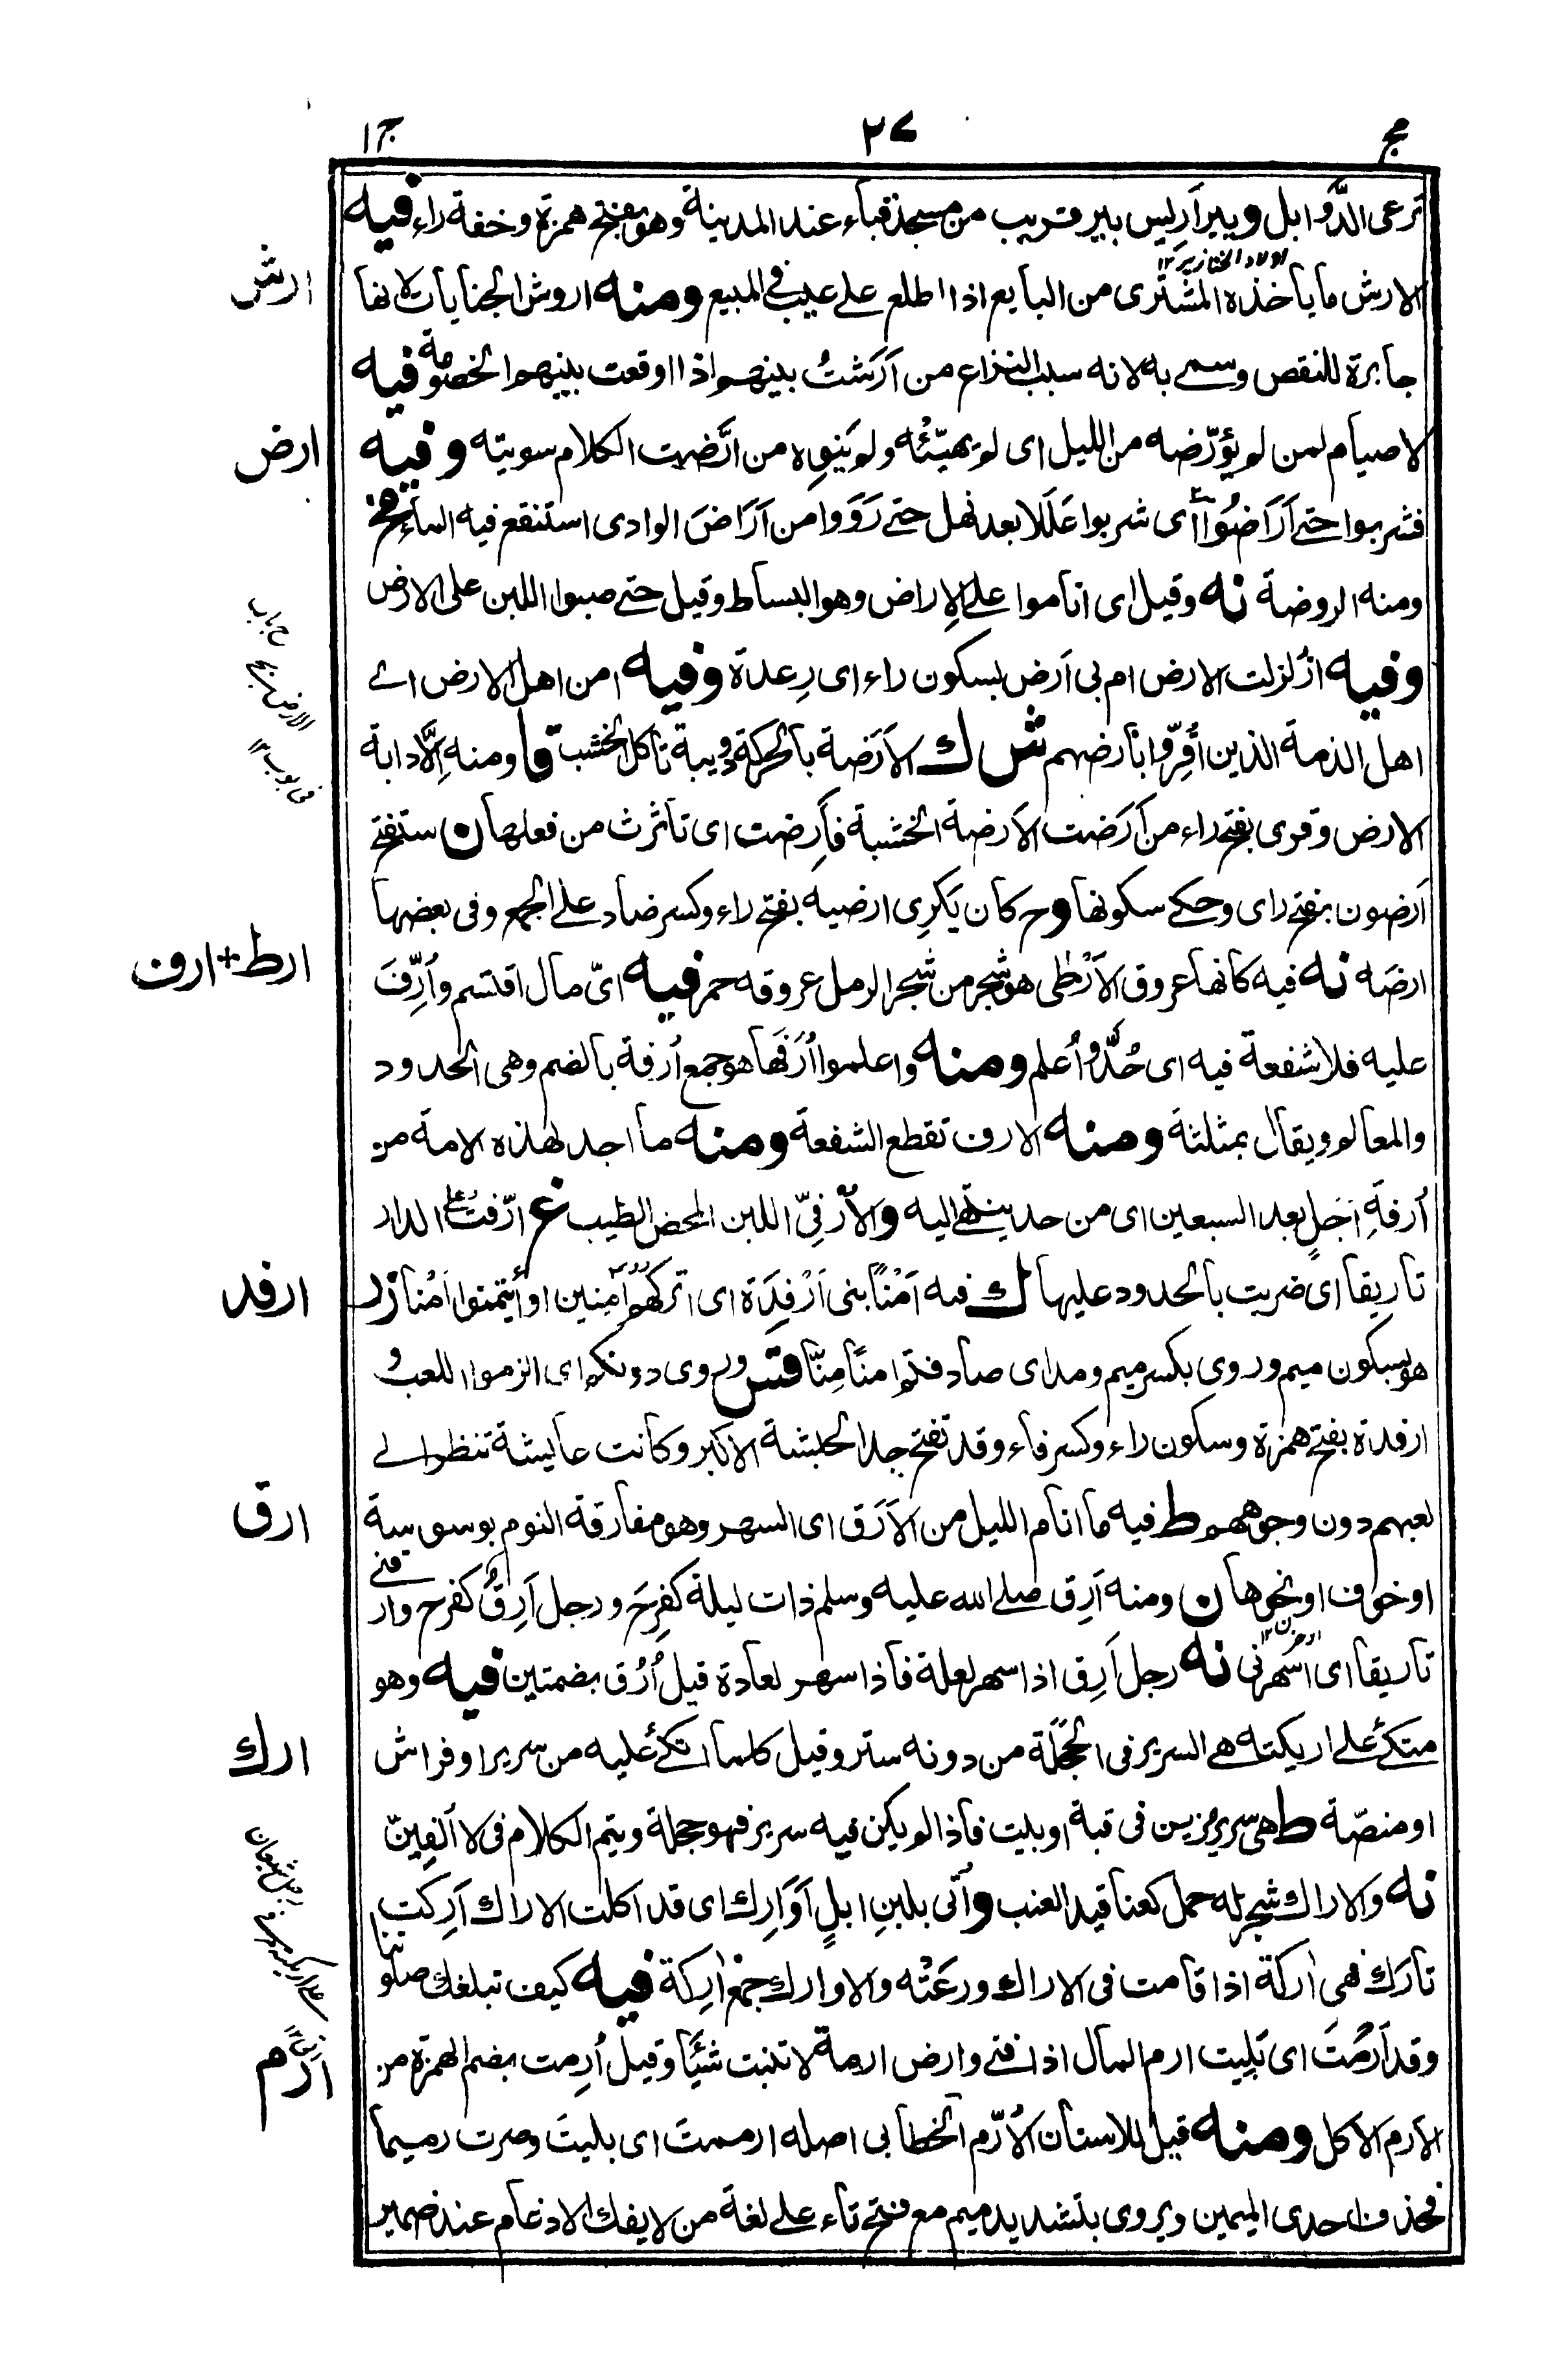 مج ٢٧ ج١
ترعى الدَّوابل وبير اَرِيس بير قريب من مسجد قباء عند المدينة وهو بفتح همزة وخفة راء فيه
اولاد الخنازير ١٢
ارش
الارش ما ياخذه المشترى من البايع اذا اطلع على عيب فى المبيع ومنه اروش الجنايات لانها
جابرة للنقص وسمى به لانه سبب النزاع من اَرَشتُ بينهم اذا اوقعت بينهم الخصومة فيه
ارض
لا صيام لمن لم يؤرّضه من الليل اى لم يهيّئه ولم ينوه من ارَّضت الكلام سويته وفيه
فشربوا حتى اَرَاضُوا اى شربوا عَلَلا بعد نهل حتى رَوَوا من اَرَاضَ الوادى استنقع فيه الماء
ومنه الروضة نه وقيل اى اناموا على الاراض وهو البساط وقيل حتى صبوا اللبن على الارض
وفيه ازلزلت الارض ام بى اَرض بسكون راء اى رِعدة وفيه امن اهل الارض اى
اهل الذمة الذين اُقِرّوا بارضهم ش ك الاَرَضة بالحركة دويبة تاكل الخشب قا ومنه اِلَّا دابة
الارض وقرى بفتح راء من اَرَضت الاَرضة الخشبة فاَرِضت اى تاثرث من فعلها ن ستفتح
اَرضون بفتح راى وحكى سكونها وح كان يَكرِى ارضيه بفتح راء وكسر ضاد على الجمع وفى بعضها
ارط + ارف
ارضَه نه فيه كانها عروق الاَرْطٰى هو شجر من شجر الرمل عروقه حمر فيه اىّ مال اقتسم واُرِّفَ
عليه فلا شفعة فيه اى حُدَّ واُعلم ومنه واعلموا اُرَفها هو جمع اُرفة بالضم وهى الحدود
والمعالم ويقال بمثلثة ومنه الارف تقطع الشفعة ومنه ما اجد لهذه الامة من
اُرفةِ اَجَلٍ بعد السبعين اى من حد ينتهى اليه والاُرْفىّ اللبن المحض الطيب غ ارّفتُ على الدار
ارفد
تاريفا اى ضربت بالحدود عليها ك فيه اَمْنًا بنى اَرْفِدَة اى اتركهم اٰمنين او ائتمنوا اَمْنا زر
هو بسكون ميم وروى بكسر ميم ومد اى صادفتم امنًا مِنّا قتس وروى دونكم اى الزموا اللعب و
ارفدة بفتح همزة وسكون راء وكسر فاء وقد تفتح جد الحبشة الاكبر وكانت عايشة تنظر الى
ارق
لعبهم دون وجوههم ط فيه ما انام الليل من الاَرَق اى السهر وهو مفارقة النوم بوسوسة
او خوف او نحوها ن ومنه اَرِق صلى الله عليه وسلم ذات ليلة كفِرحَ ورجل اَرِقٌ كفرح وارقنى
او حزن ١٢
تاريقا اى اسهرنى نه رجل اَرِق اذا سهر لعلة فاذا سهر لعادة قيل اُرُق بضمتين فيه وهو
ارك
متكئ على اريكته هى السرير فى الحَجَلَة من دونه ستر وقيل كلما اتكئ عليه من سرير او فراش
او منصّة ط هى سرير مزين فى قبة او بيت فاذا لم يكن فيه سرير فهو حجلة ويتم الكلام فى لا اُلفِيَنّ
نه والاراك شجر له حمل كعناقيد العنب واُتى بلبنِ ابلٍ اَوَارِك اى قد اكلت الاراك اَرِكت
تارَك فهى اٰركة اذا قامت فى الاراك ورعَتْه والاوارك جمع اٰرِكة فيه كيف تبلغك صلوتنا
ارم
وقد اَرَمْتَ اى بَلِيت ارم المال اذا فنى وارض ارمة لا تنبت شيًا وقيل اُرِمت بضم الهمزة من
الاَرم الاكل ومنه قيل للاسنان الاُرّم الخطابى اصله ارممت اى بليتَ وصرت رميما
فحذف احدى الميمين ويروى بتشديد ميم مع فتح تاء على لغة من لا يفك الادغام عند ضمير